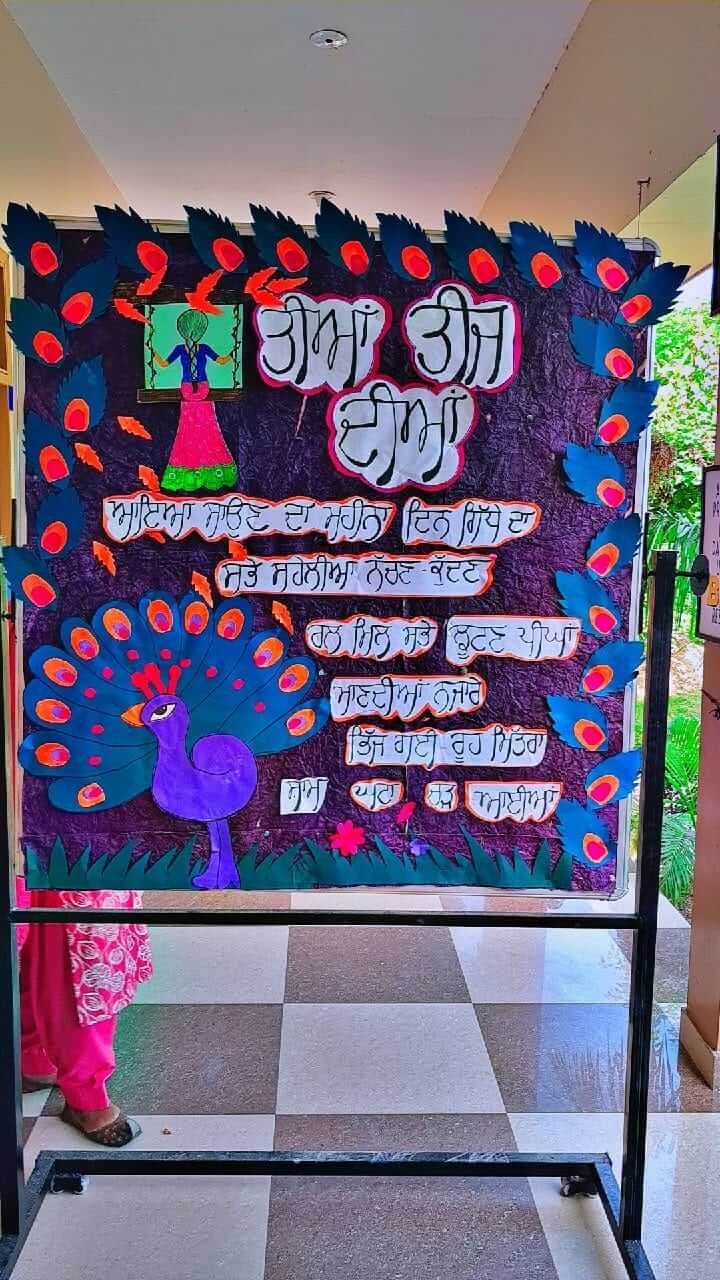 ਤੀਆਂ ਤੀਜ
ਦੀਆਂ
ਆਇਆ ਸਾਉਣ ਦਾ ਮਹੀਨਾ ਦਿਨ ਗਿੱਧੇ ਦਾ
ਸਭੇ ਸਹੇਲੀਆ ਨੱਚਣ ਕੁੱਦਣ
ਰਲ ਮਿਲ ਸਭੇ ਝੂਟਣ ਪੀਘਾਂ
ਮਾਣਦੀਆਂ ਨਜਾਰੇ
ਭਿੱਜ ਗਈ ਰੂਹ ਮਿੱਤਰਾ
ਸ਼ਾਮ ਘਟਾ ਚੜ੍ਹ ਆਈਆਂ